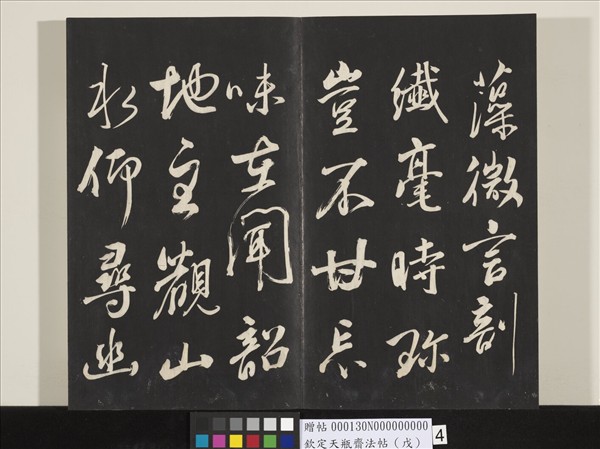 藻微言剖
纖毫時珍
豈不甘忘
味在聞韶
地主觀山
水仰尋幽
贈帖 000130N000000000
欽定天瓶齋法帖（戊）
4